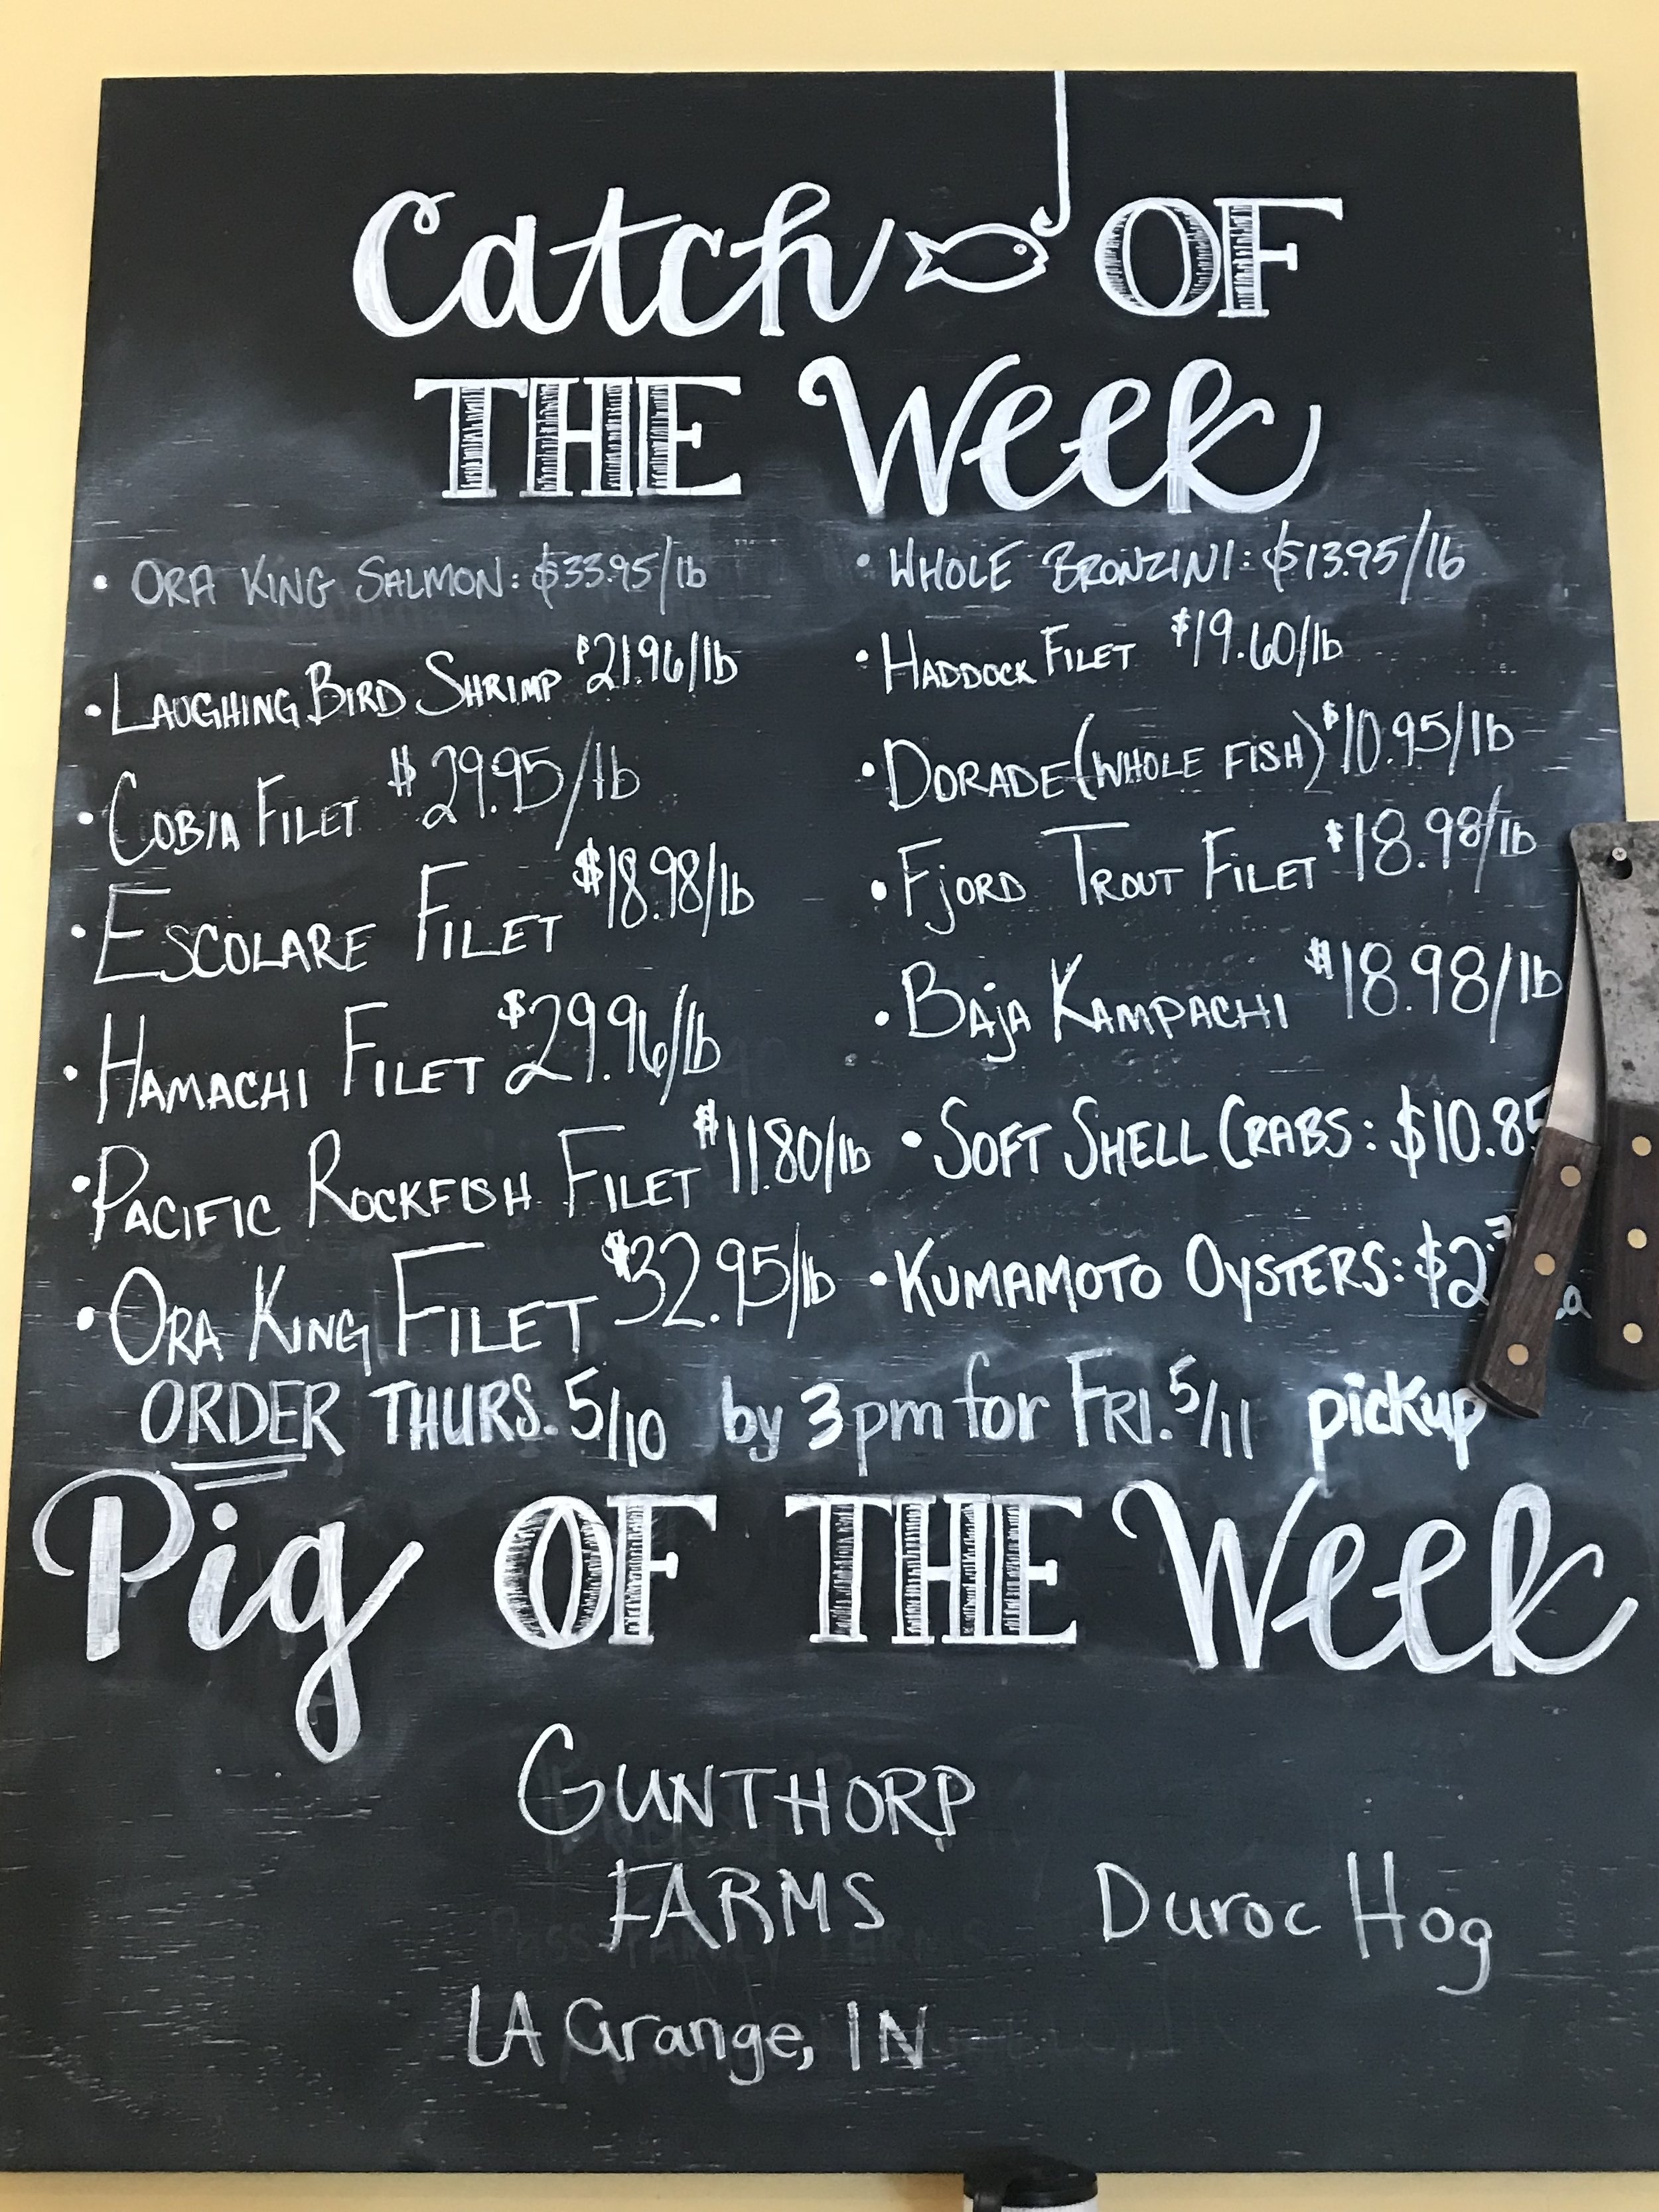 Catch OF
THE Week
• ORA KING SALMON: $33.95/lb
• LAUGHING BIRD SHRIMP $21.96/lb
• COBIA FILET $29.95/lb
• ESCOLARE FILET $18.98/lb
• HAMACHI FILET $29.96/lb
• PACIFIC ROCKFISH FILET $11.80/lb
• ORA KING FILET $32.95/lb
• WHOLE BRONZINI: $13.95/lb
• HADDOCK FILET $19.60/lb
• DORADE (WHOLE FISH) $10.95/lb
• FJORD TROUT FILET $18.98/lb
• BAJA KAMPACHI $18.98/lb
• SOFT SHELL CRABS: $10.85
• KUMAMOTO OYSTERS:
ORDER THURS. 5/10 by 3pm for FRI. 5/11 pickup
Pig OF THE Week
GUNTHORP
FARMS
Duroc Hog
LA Grange, IN